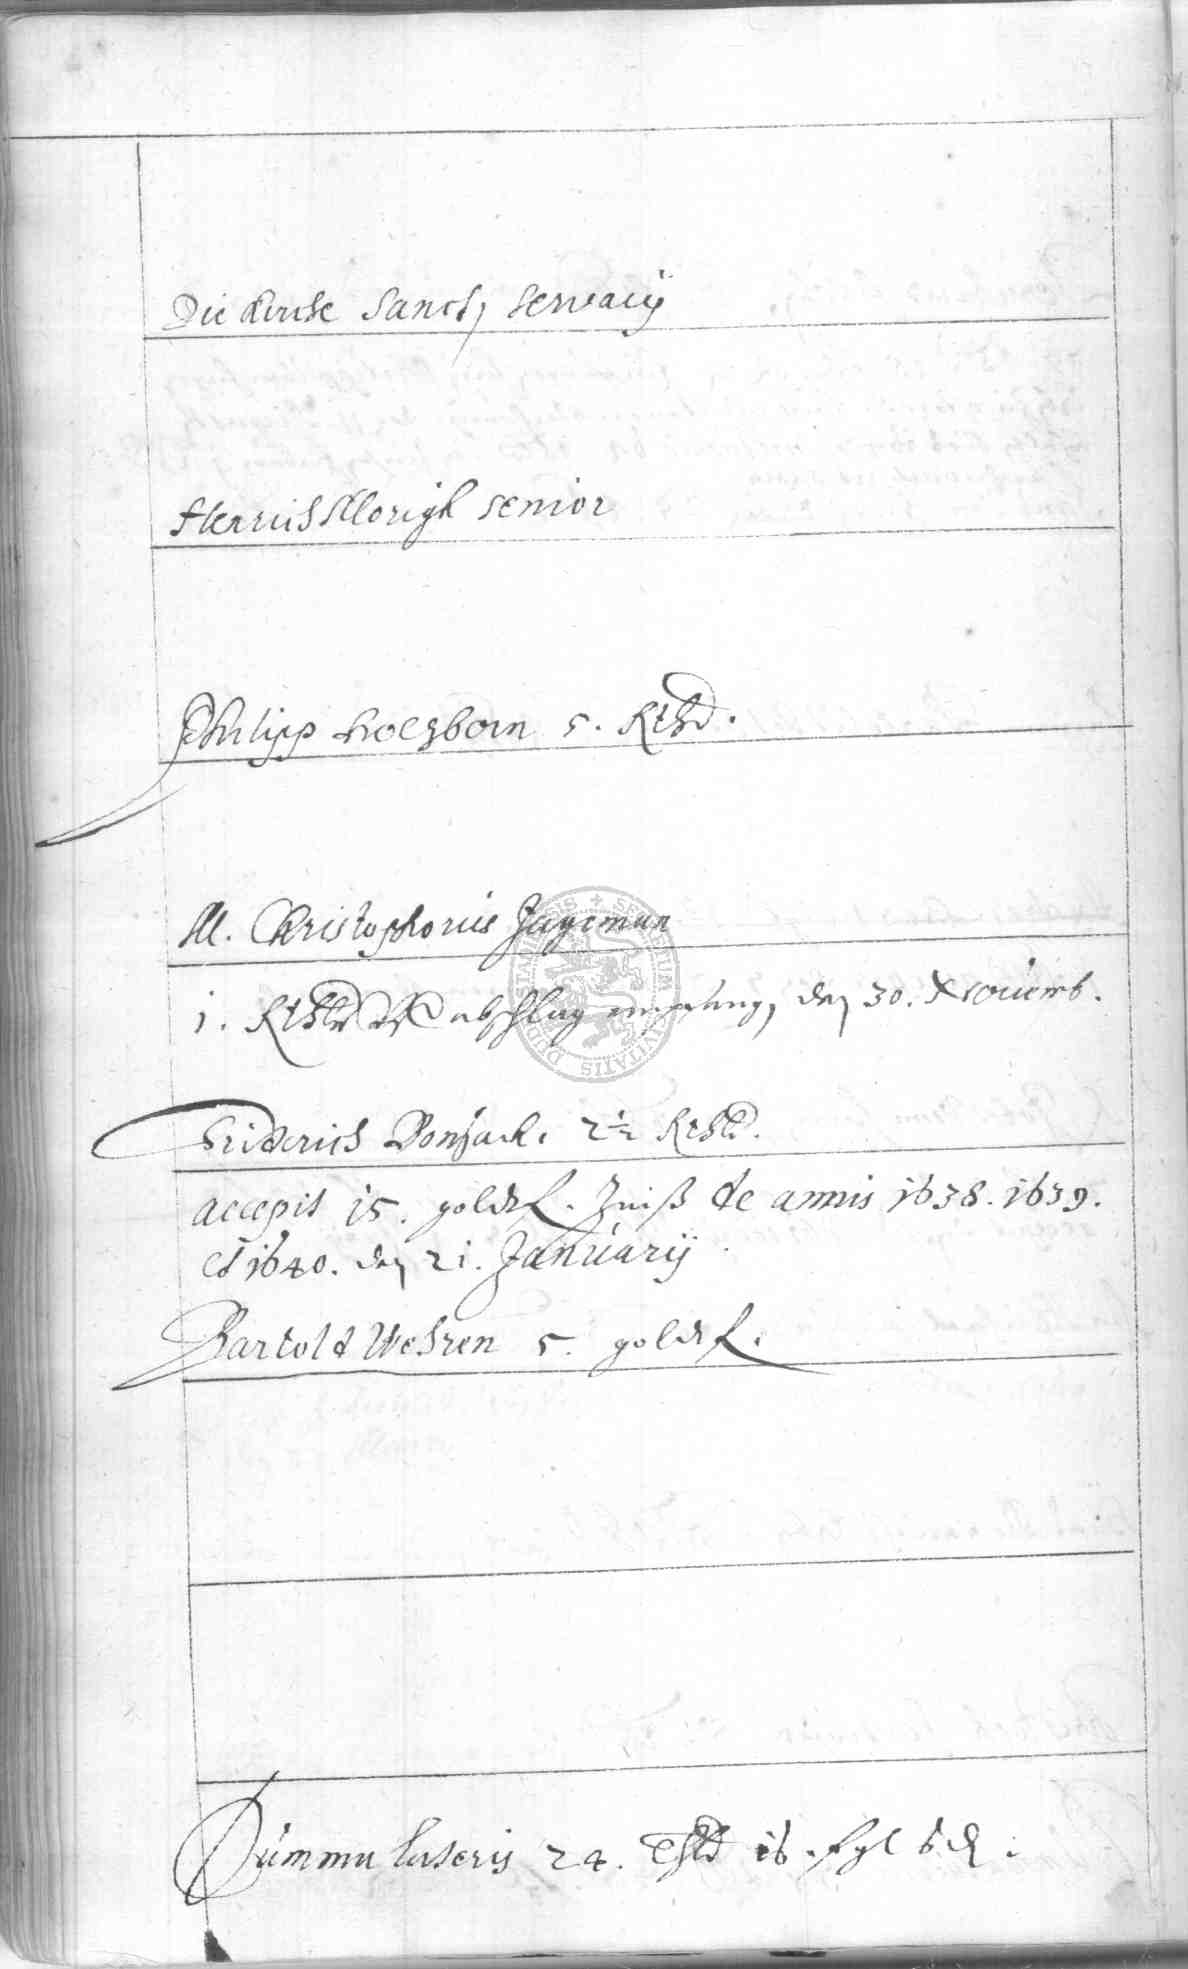 Die Kirche Sancti Servacij
Henrich Morigk senior
Philipp Holtzborn 5. Rthlr.
M. Christophorus Jageman
1. Rthlr abschlag den 30. Novemb.
Friderich Bonsack. 2½ Rthlr.
accepit 15. goldfl. Zinß de annis 1638. 1639.
et 1640. den 21. Januarij
Bartold Wehren 5. goldfl.
Summa lateris 24. Thlr 16. sgl 6 d.